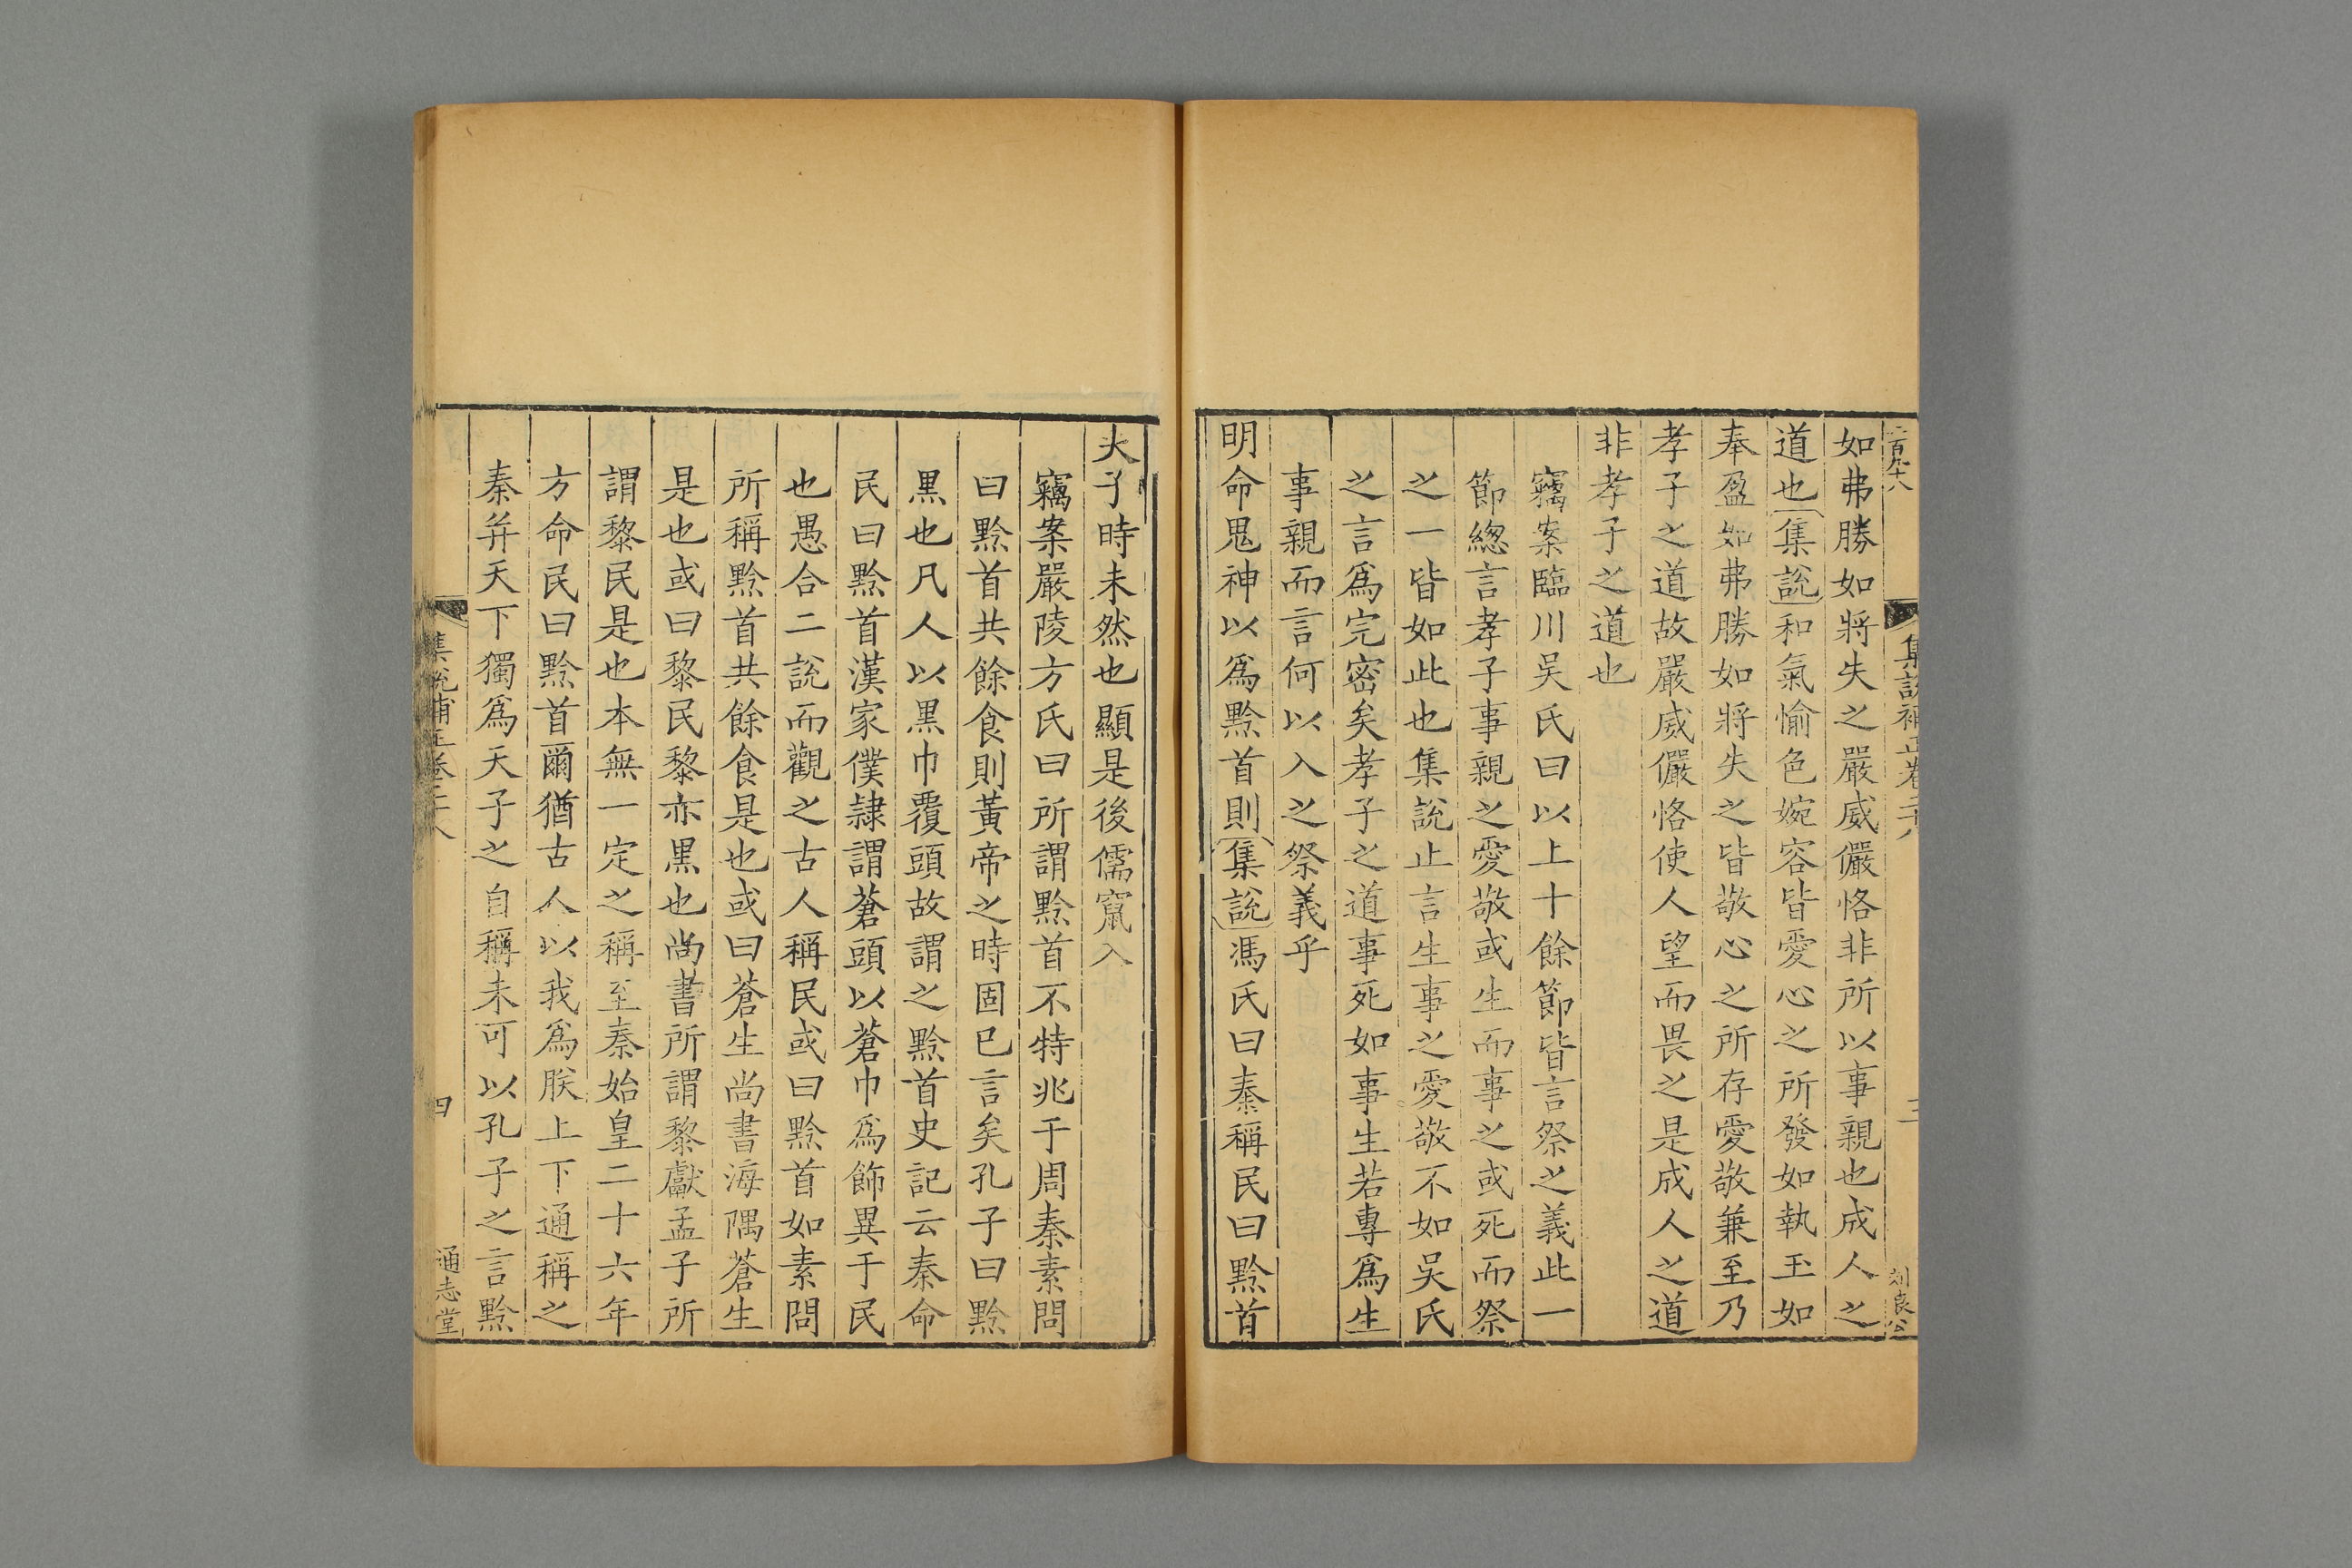 二百九十八
集說補正卷二十八
三
刘良公
如弗勝如將失之嚴威儼恪非所以事親也成人之
道也集說和氣愉色婉容皆愛心之所發如執玉如
奉盈如弗勝如將失之皆敬心之所存愛敬兼至乃
孝子之道故嚴威儼恪使人望而畏之是成人之道
非孝子之道也
竊案臨川吳氏曰以上十餘節皆言祭之義此一
節總言孝子事親之愛敬或生而事之或死而祭
之一皆如此也集說止言生事之愛敬不如吳氏
之言爲完密矣孝子之道事死如事生若專爲生
事親而言何以入之祭義乎
明命鬼神以爲黔首則集說馮氏曰秦稱民曰黔首
夫子時未然也顯是後儒竄入
竊案嚴陵方氏曰所謂黔首不特兆于周秦素問
曰黔首共餘食則黃帝之時固已言矣孔子曰黔
黑也凡人以黑巾覆頭故謂之黔首史記云秦命
民曰黔首漢家僕隸謂蒼頭以蒼巾爲飾異于民
也愚合二說而觀之古人稱民或曰黔首如素問
所稱黔首共餘食是也或曰蒼生尚書海隅蒼生
是也或曰黎民黎亦黑也尚書所謂黎獻孟子所
謂黎民是也本無一定之稱至秦始皇二十六年
方命民曰黔首爾猶古人以我爲朕上下通稱之
秦并天下獨爲天子之自稱未可以孔子之言黔
集說補正卷二十八
四
通志堂